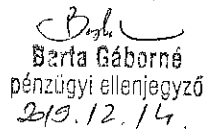 Barta Gáborné
pénzügyi ellenjegyző
2019.12.14.